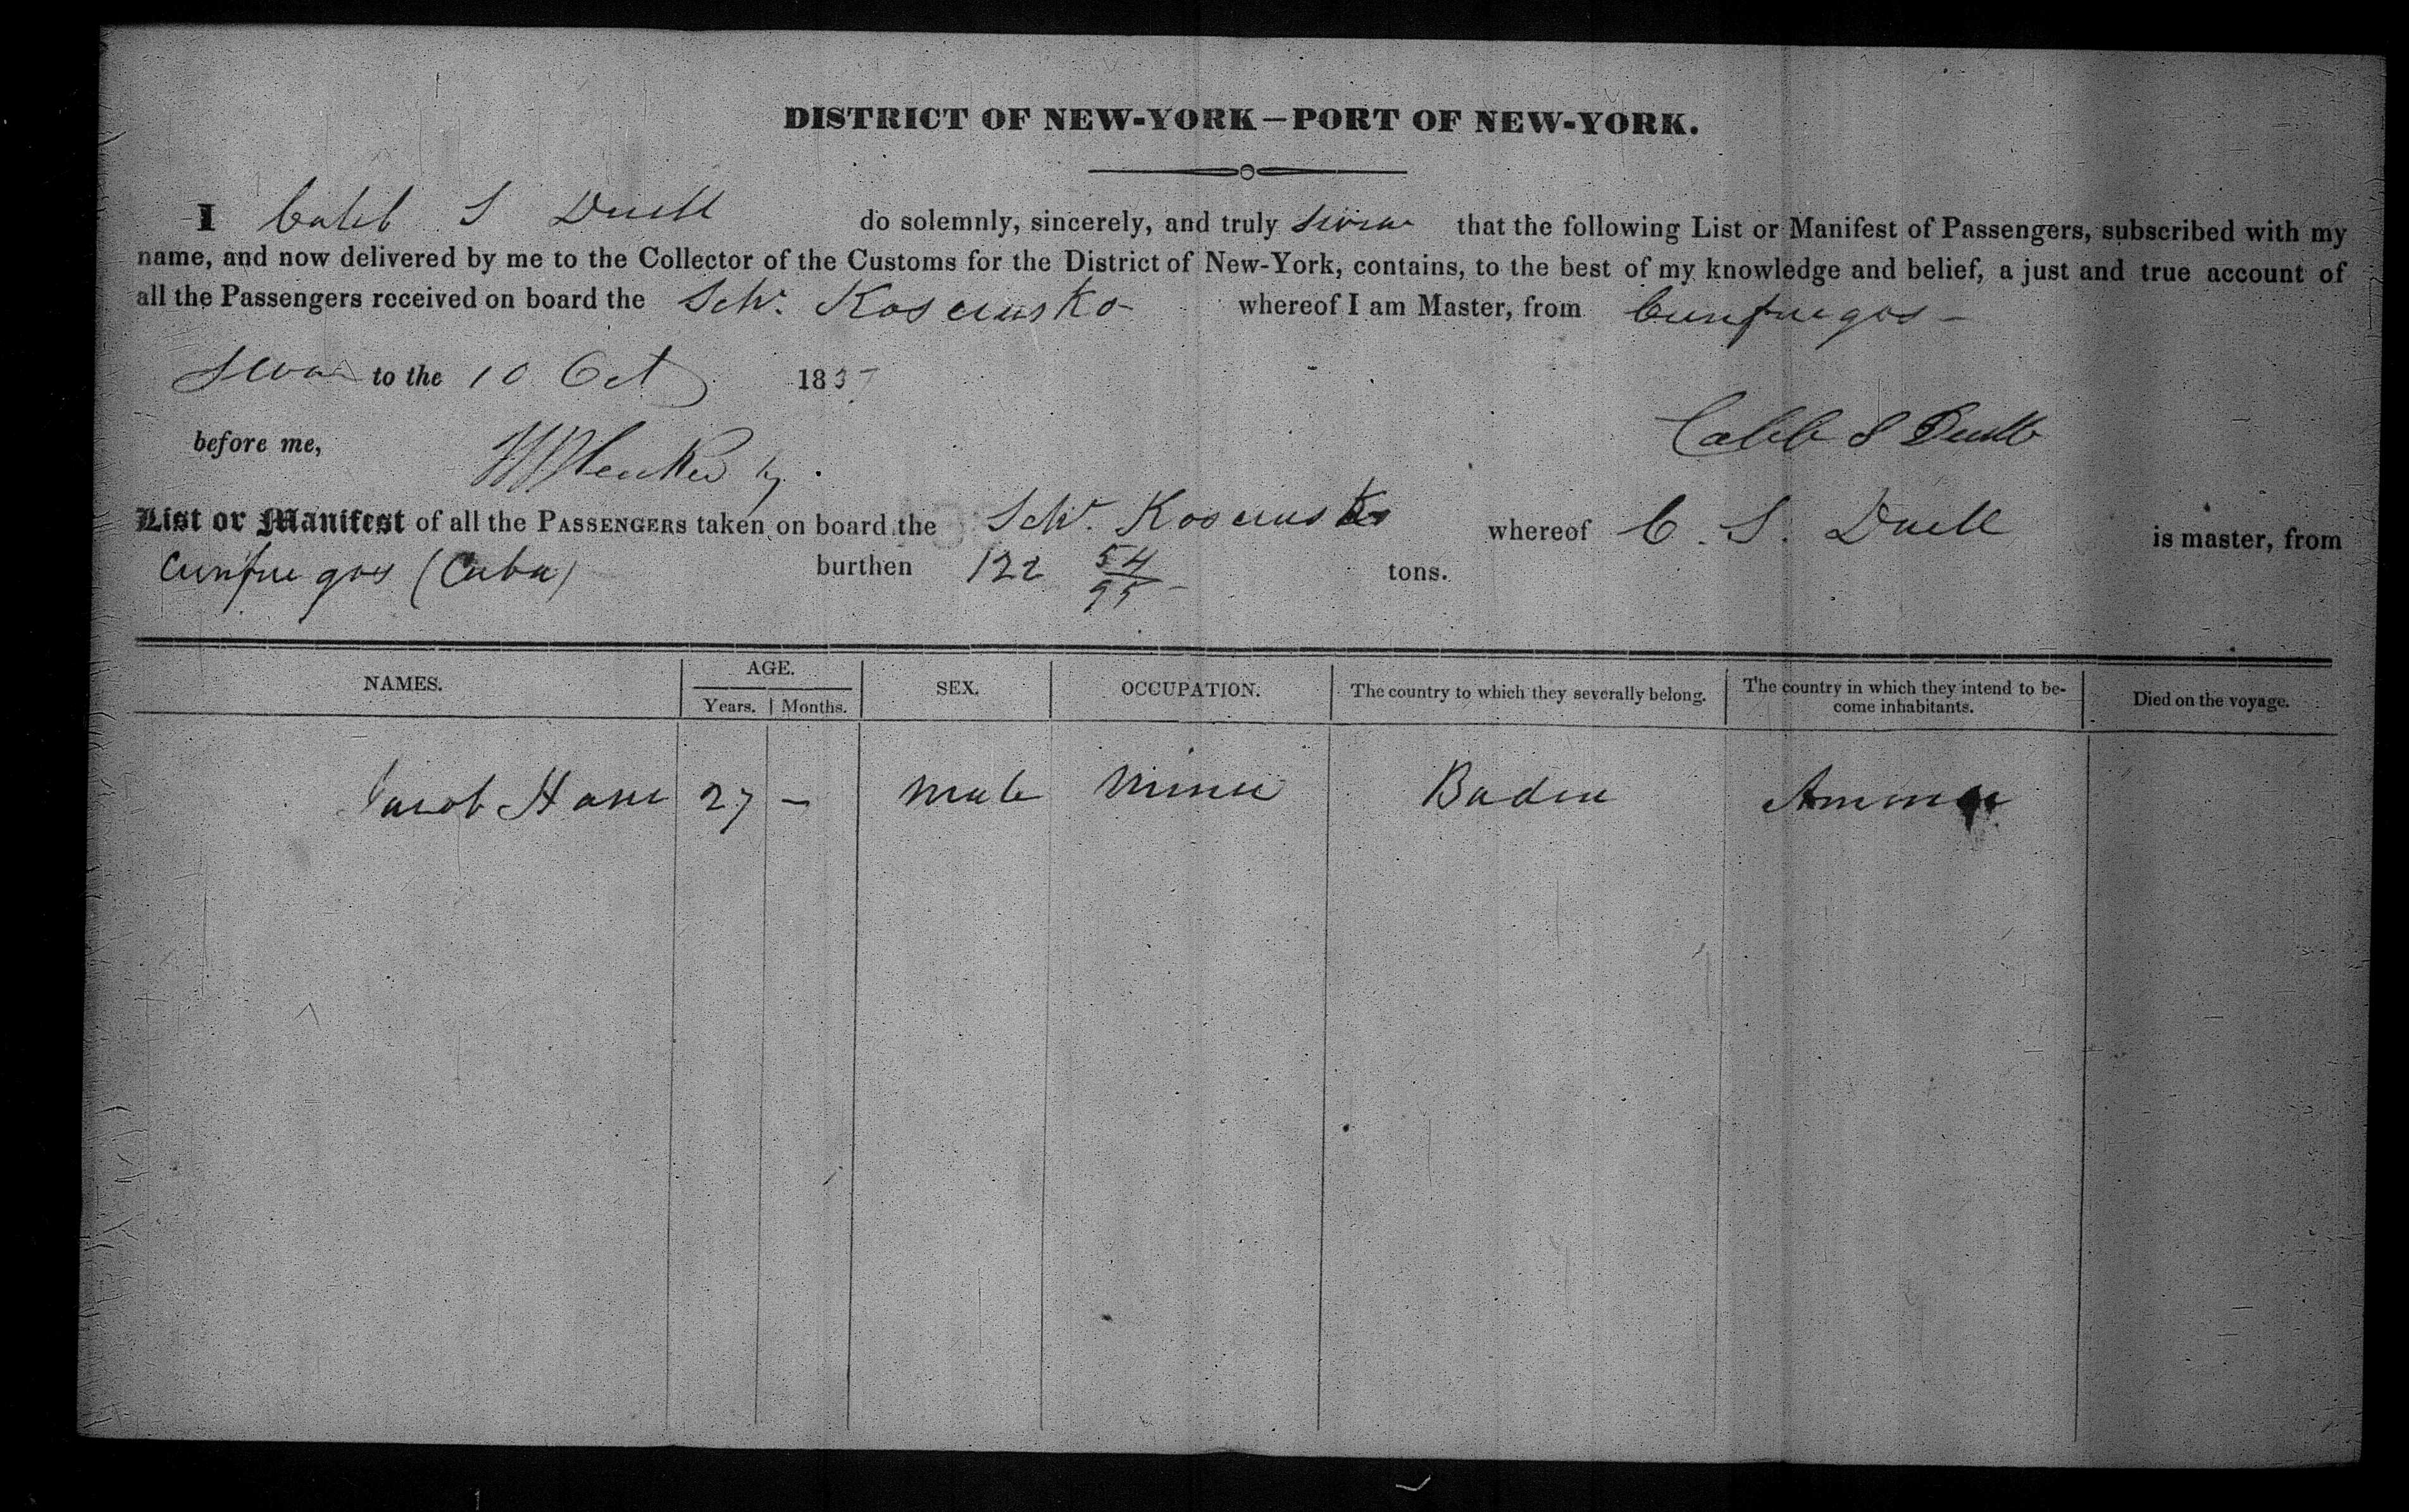 DISTRICT OF NEW-YORK—PORT OF NEW-YORK.
I Caleb S Duell do solemnly, sincerely, and truly swear that the following List or Manifest of Passengers, subscribed with my
name, and now delivered by me to the Collector of the Customs for the District of New-York, contains, to the best of my knowledge and belief, a just and true account of
all the Passengers received on board the Schr. Kosciusko whereof I am Master, from Cienfuegos –
Sworn to the 10 Oct 1837
before me, Caleb S Duell
List or Manifest of all the PASSENGERS taken on board the Schr. Kosciusko whereof C. S. Duell is master, from
Cienfuegos (Cuba) burthen 122 54/95 tons.
NAMES. AGE. SEX. OCCUPATION. The country to which they severally belong. The country in which they intend to be- Died on the voyage.
Years. Months. come inhabitants.
Jacob 27 – Male Miner Baden